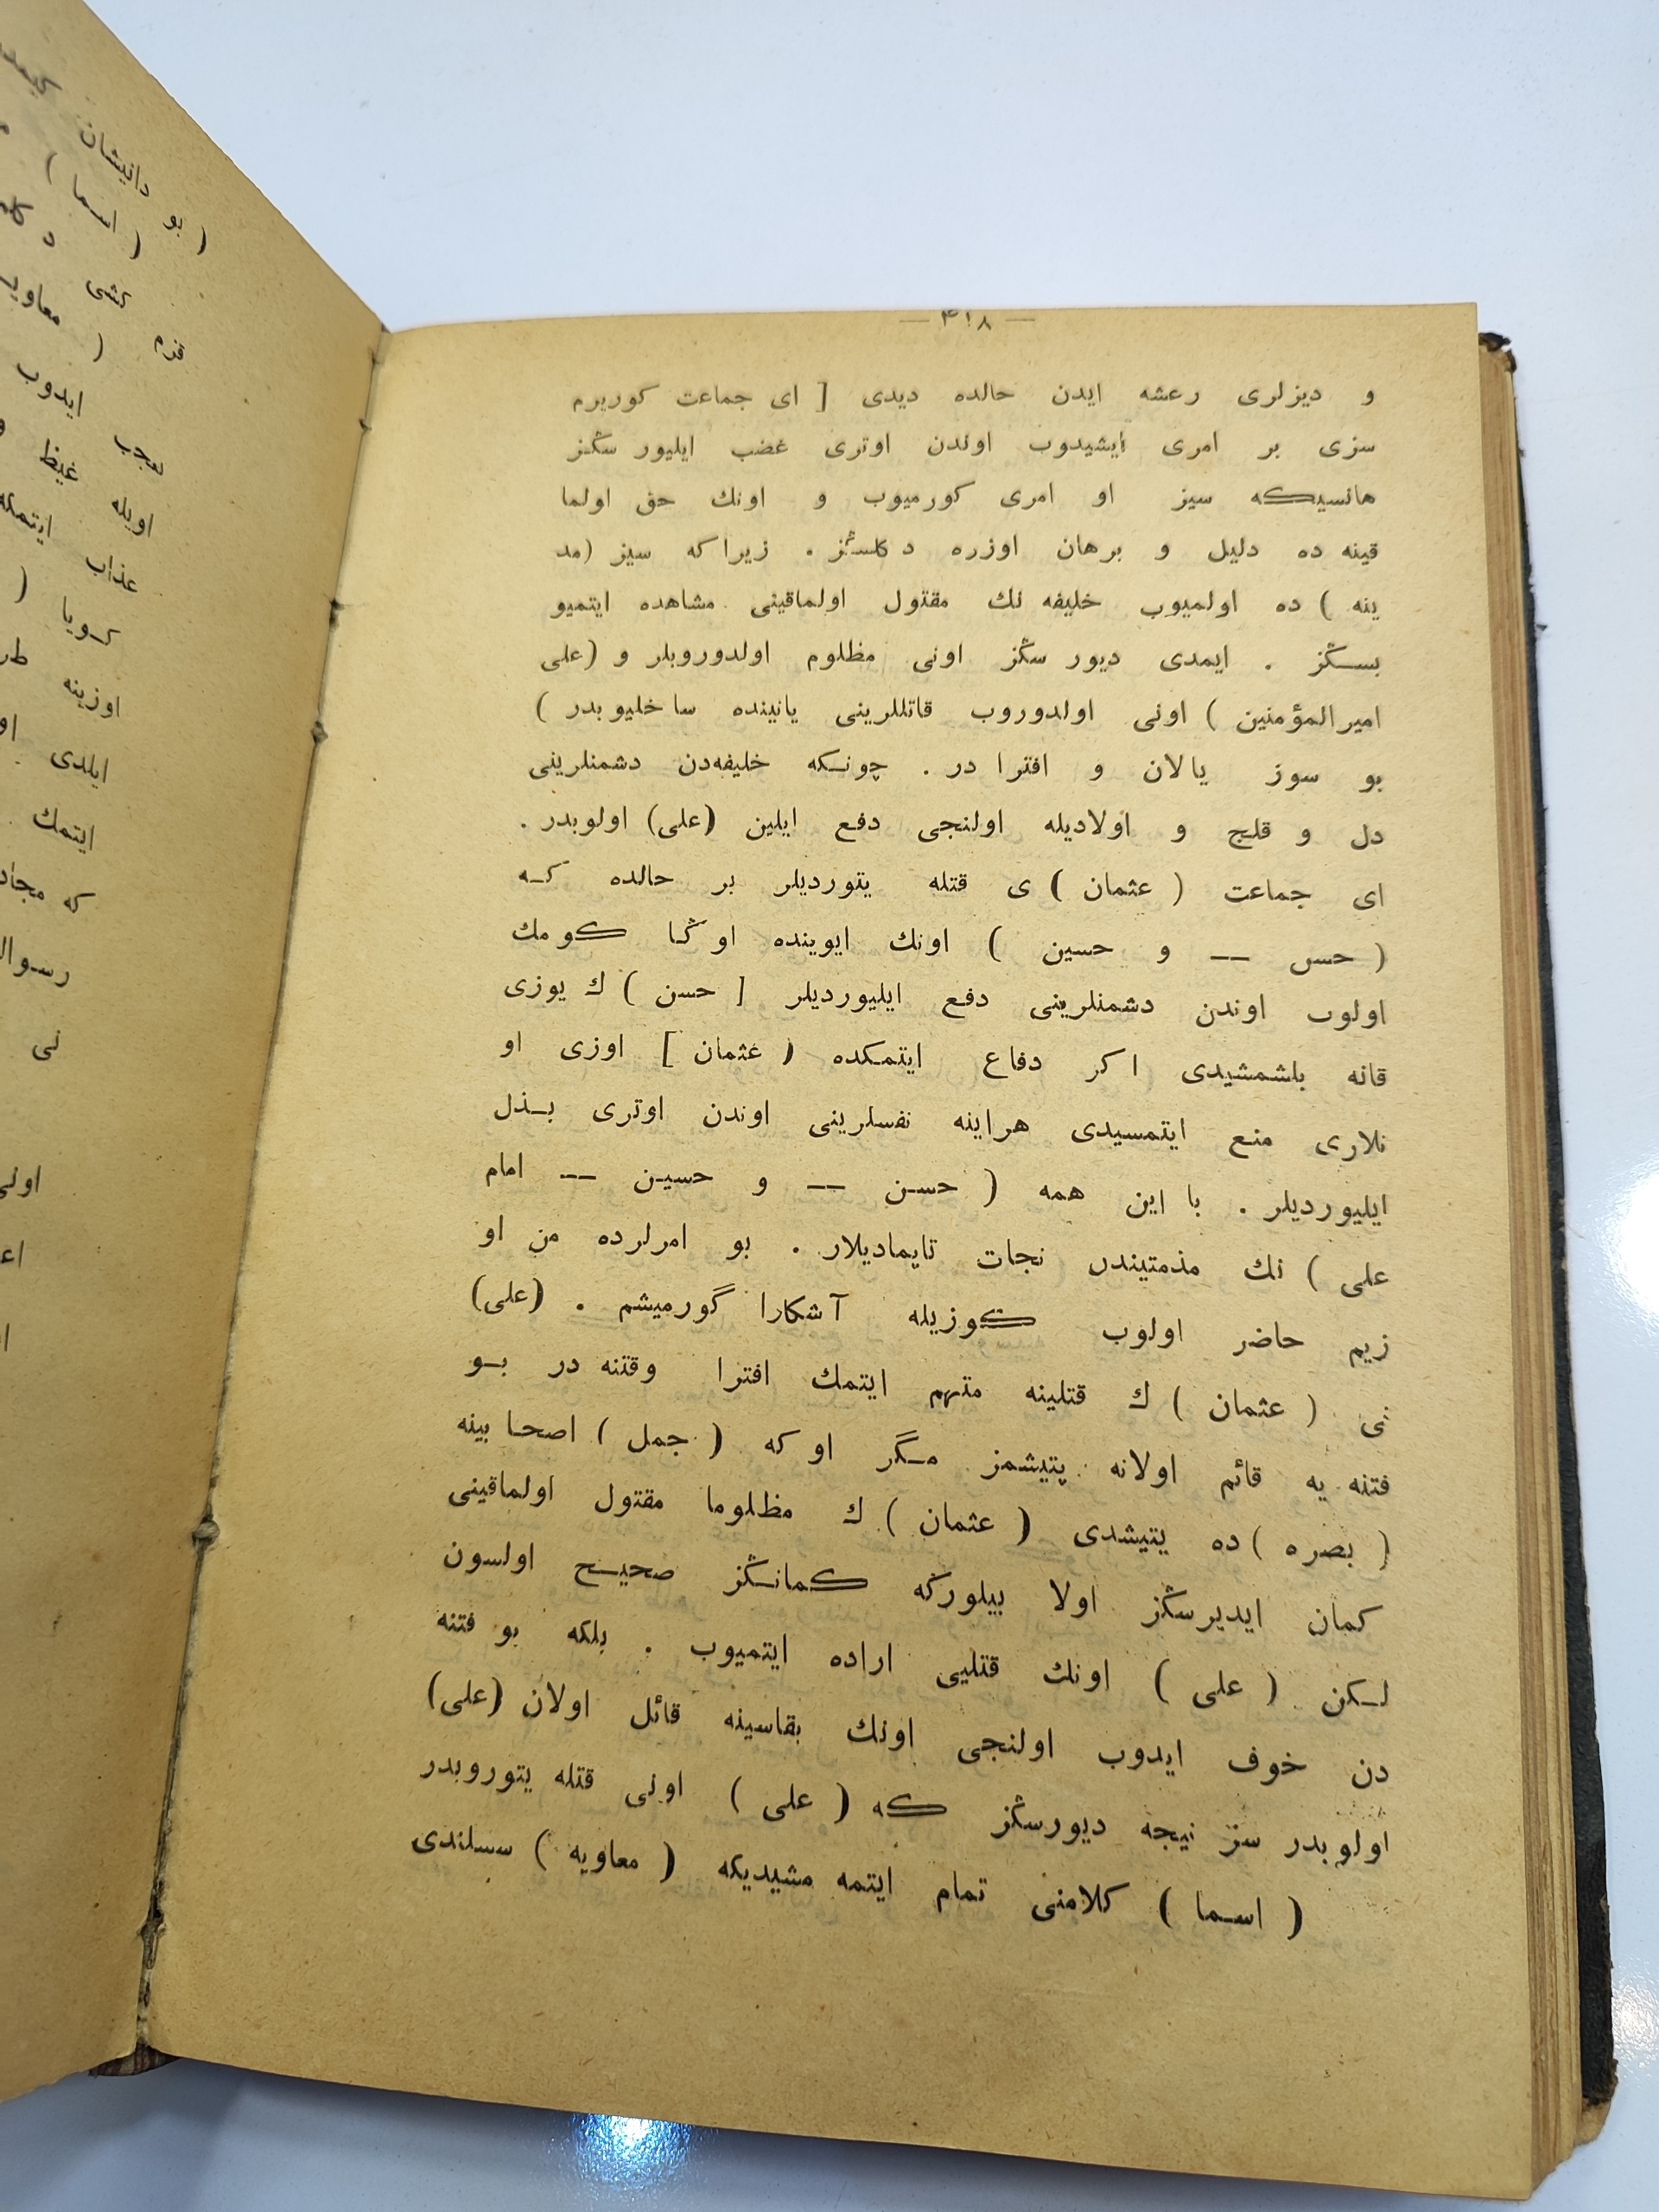 — ۴۱۸ —
و دیزلری رعشه ایدن حالده دیدی [ ای جماعت کوریرم
سزی بر امری ایشیدوب اوندن اوتری غضب ایلیور سڭز
هانسیکه سیز او امری کورمیوب و اونك حق اولما
قینه ده دلیل و برهان اوزره دکلسڭز . زیراکه سیز (مد
ینه ) ده اولمیوب خلیفه نك مقتول اولماقینی مشاهده ایتمیو
بسڭز . ایمدی دیور سڭز اونی مظلوم اولدوروبلر و (علی
امیرالمؤمنین ) اونی اولدوروب قاتللرینی یانینده ساخلیوبدر )
بو سوز یالان و افترا در . چونکه خلیفه‌دن دشمنلرینی
دل و قلج و اولادیله اولنجی دفع ایلین (علی) اولوبدر .
ای جماعت ( عثمان ) ی قتله یتوردیلر بر حالده که
( حسن — و حسین ) اونك ایوینده اوڭا کومك
اولوب اوندن دشمنلرینی دفع ایلیوردیلر [ حسن ) ك یوزی
قانه باشمشیدی اکر دفاع ایتمکده ( عثمان ] اوزی او
نلاری منع ایتمسیدی هراینه نفسلرینی اوندن اوتری بذل
ایلیوردیلر . با این همه ( حسن — و حسین — امام
علی ) نك مذمتیندن نجات تاپمادیلار . بو امرلرده من او
زیم حاضر اولوب کوزیله آشکارا گورمیشم . (علی)
نی ( عثمان ) ك قتلینه متهم ایتمك افترا وقتنه در بو
فتنه یه قائم اولانه یتیشمز مگر اوکه ( جمل ) اصحابینه
( بصره ) ده یتیشدی ( عثمان ) ك مظلوما مقتول اولماقینی
کمان ایدیرسڭز اولا بیلورکه کمانڭز صحیح اولسون
لکن ( علی ) اونك قتلیی اراده ایتمیوب . بلکه بو فتنه
دن خوف ایدوب اولنجی اونك بقاسینه قائل اولان (علی)
اولوبدر سز نیجه دیورسڭز که ( علی ) اونی قتله یتوروبدر
( اسما ) کلامنی تمام ایتمه مشیدیکه ( معاویه ) سسلندی
( بو دانیشان
( اسما )
کشی
قزم ( معاویه
تعجب ایدوب
اویله غیظ
عذاب ایتمکه
کویا (
اوزینه
ایلدی
ایتمك
که
نی